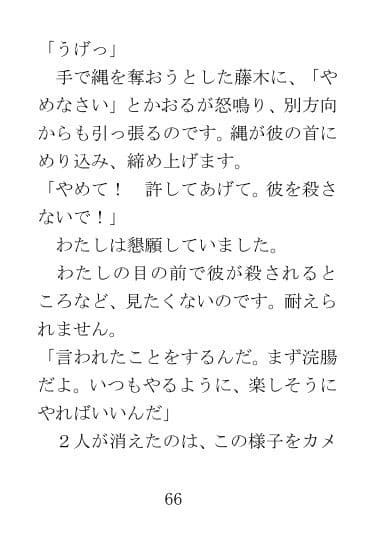 「うげっ」
　手で縄を奪おうとした藤木に、「や
めなさい」とかおるが怒鳴り、別方向
からも引っ張るのです。縄が彼の首に
めり込み、締め上げます。
「やめて！　許してあげて。彼を殺さ
ないで！」
　わたしは懇願していました。
　わたしの目の前で彼が殺されると
ころなど、見たくないのです。耐えら
れません。
「言われたことをするんだ。まず浣腸
だよ。いつもやるように、楽しそうに
やればいいんだ」
　２人が消えたのは、この様子をカメ
66